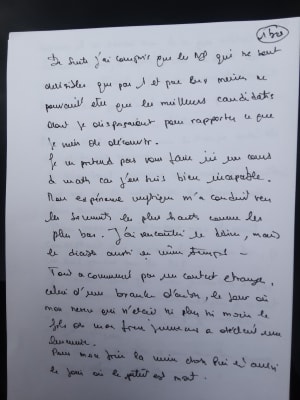 De suite j'ai compris que les NP qui ne sont
divisibles que par 1 et par eux mêmes ne
pouvait être que les meilleurs candidats
dont je disposaient pour rapporter ce que
je viens de découvrir.
Je ne prétend pas vous faire ici un cours
de math car j'en suis bien incapable.
Mon expérience mystique m'a conduit vers
les sommets les plus hauts comme les
plus bas. J'ai rencontré le divin, mais
le diable aussi en même temps -
Tout a commencé par un contact étrange,
celui d'une branche d'arbre, le jour où
mon neveu qui n'était ni plus ni moins le
fils de mon frère jumeau a
lumière.
Pour mon la même chose aussi
le jour où le petit est mort.